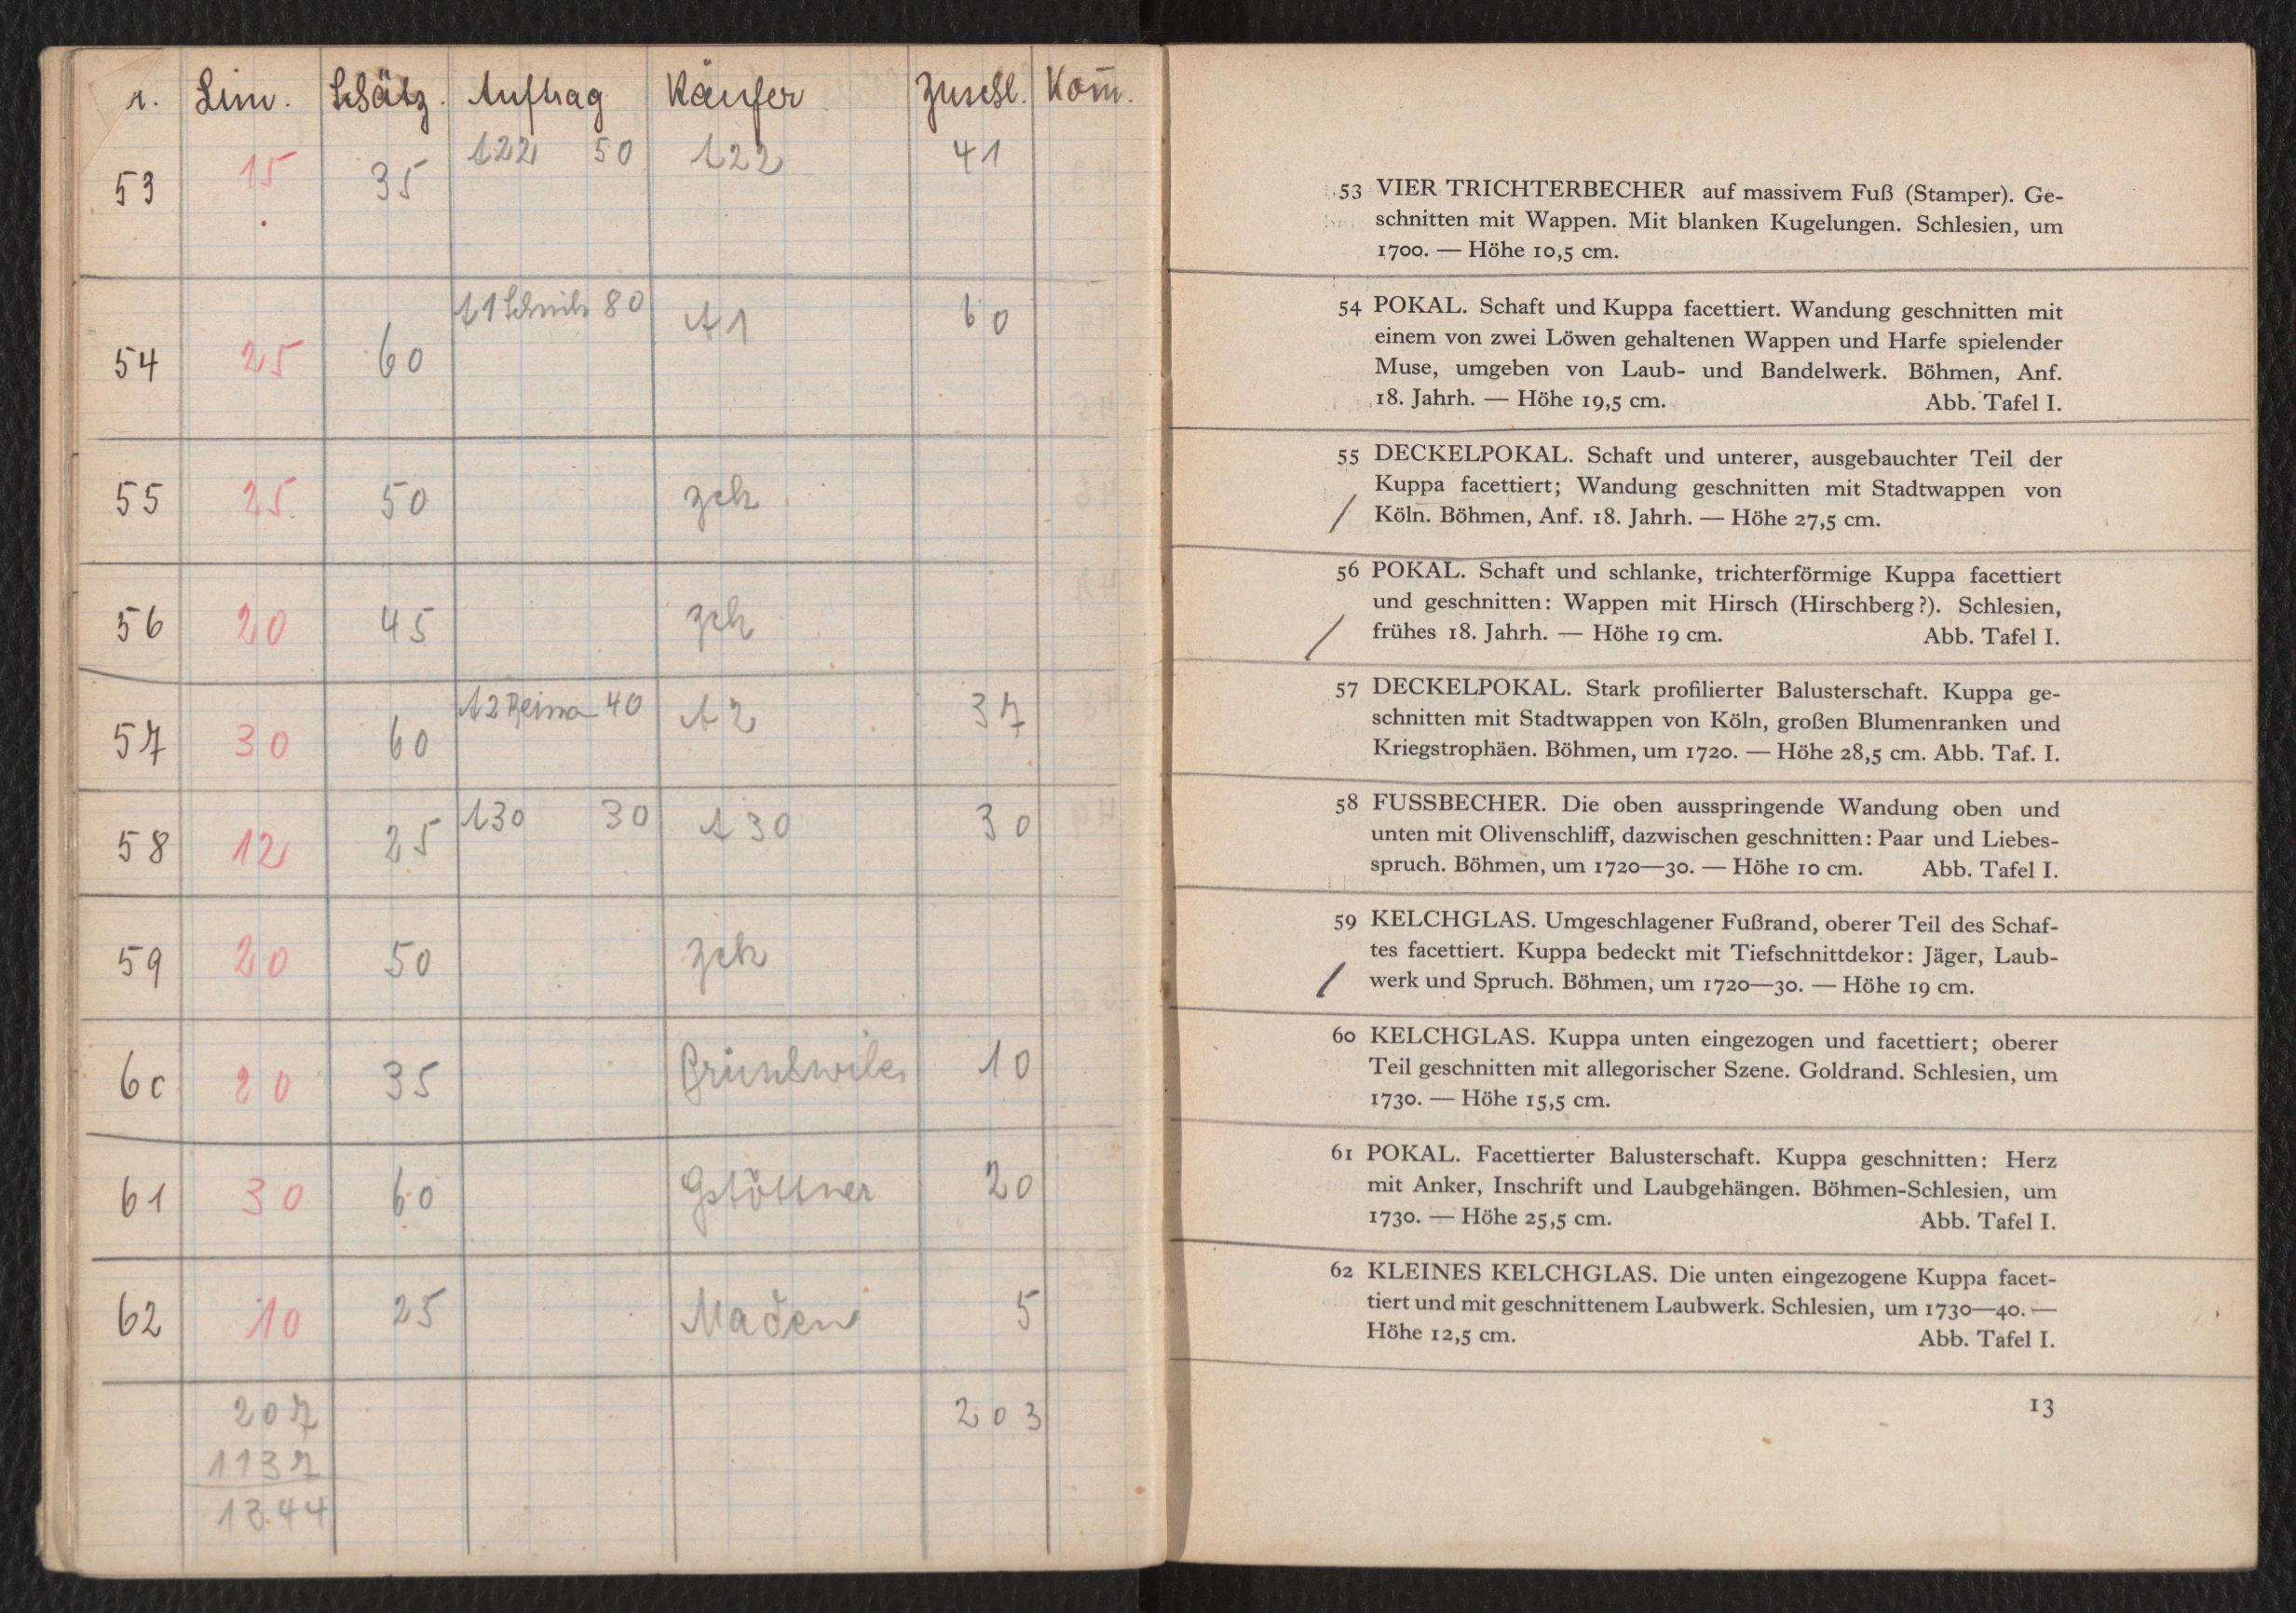 r. Lim. Schätz. Auftrag Käufer Zuschl. Kom̄.
53 15 35 A22 50 A22 41
54 25 60 A1 80 A1 60
55 25 50 zck
56 20 45 zck
57 30 60 A2 40 A2 37
58 12 25 A30 30 A30 30
59 20 50 zck
60 20 35 10
61 30 60 Gstöttner 20
62 10 25 5
207 203
1137
1344
53 VIER TRICHTERBECHER auf massivem Fuß (Stamper). Ge-
schnitten mit Wappen. Mit blanken Kugelungen. Schlesien, um
1700. — Höhe 10,5 cm.
54 POKAL. Schaft und Kuppa facettiert. Wandung geschnitten mit
einem von zwei Löwen gehaltenen Wappen und Harfe spielender
Muse, umgeben von Laub- und Bandelwerk. Böhmen, Anf.
18. Jahrh. — Höhe 19,5 cm. Abb. Tafel I.
55 DECKELPOKAL. Schaft und unterer, ausgebauchter Teil der
Kuppa facettiert; Wandung geschnitten mit Stadtwappen von
Köln. Böhmen, Anf. 18. Jahrh. — Höhe 27,5 cm.
56 POKAL. Schaft und schlanke, trichterförmige Kuppa facettiert
und geschnitten: Wappen mit Hirsch (Hirschberg?). Schlesien,
frühes 18. Jahrh. — Höhe 19 cm. Abb. Tafel I.
57 DECKELPOKAL. Stark profilierter Balusterschaft. Kuppa ge-
schnitten mit Stadtwappen von Köln, großen Blumenranken und
Kriegstrophäen. Böhmen, um 1720. — Höhe 28,5 cm. Abb. Taf. I.
58 FUSSBECHER. Die oben ausspringende Wandung oben und
unten mit Olivenschliff, dazwischen geschnitten: Paar und Liebes-
spruch. Böhmen, um 1720—30. — Höhe 10 cm. Abb. Tafel I.
59 KELCHGLAS. Umgeschlagener Fußrand, oberer Teil des Schaf-
tes facettiert. Kuppa bedeckt mit Tiefschnittdekor: Jäger, Laub-
werk und Spruch. Böhmen, um 1720—30. — Höhe 19 cm.
60 KELCHGLAS. Kuppa unten eingezogen und facettiert; oberer
Teil geschnitten mit allegorischer Szene. Goldrand. Schlesien, um
1730. — Höhe 15,5 cm.
61 POKAL. Facettierter Balusterschaft. Kuppa geschnitten: Herz
mit Anker, Inschrift und Laubgehängen. Böhmen-Schlesien, um
1730. — Höhe 25,5 cm. Abb. Tafel I.
62 KLEINES KELCHGLAS. Die unten eingezogene Kuppa facet-
tiert und mit geschnittenem Laubwerk. Schlesien, um 1730—40. —
Höhe 12,5 cm. Abb. Tafel I.
13